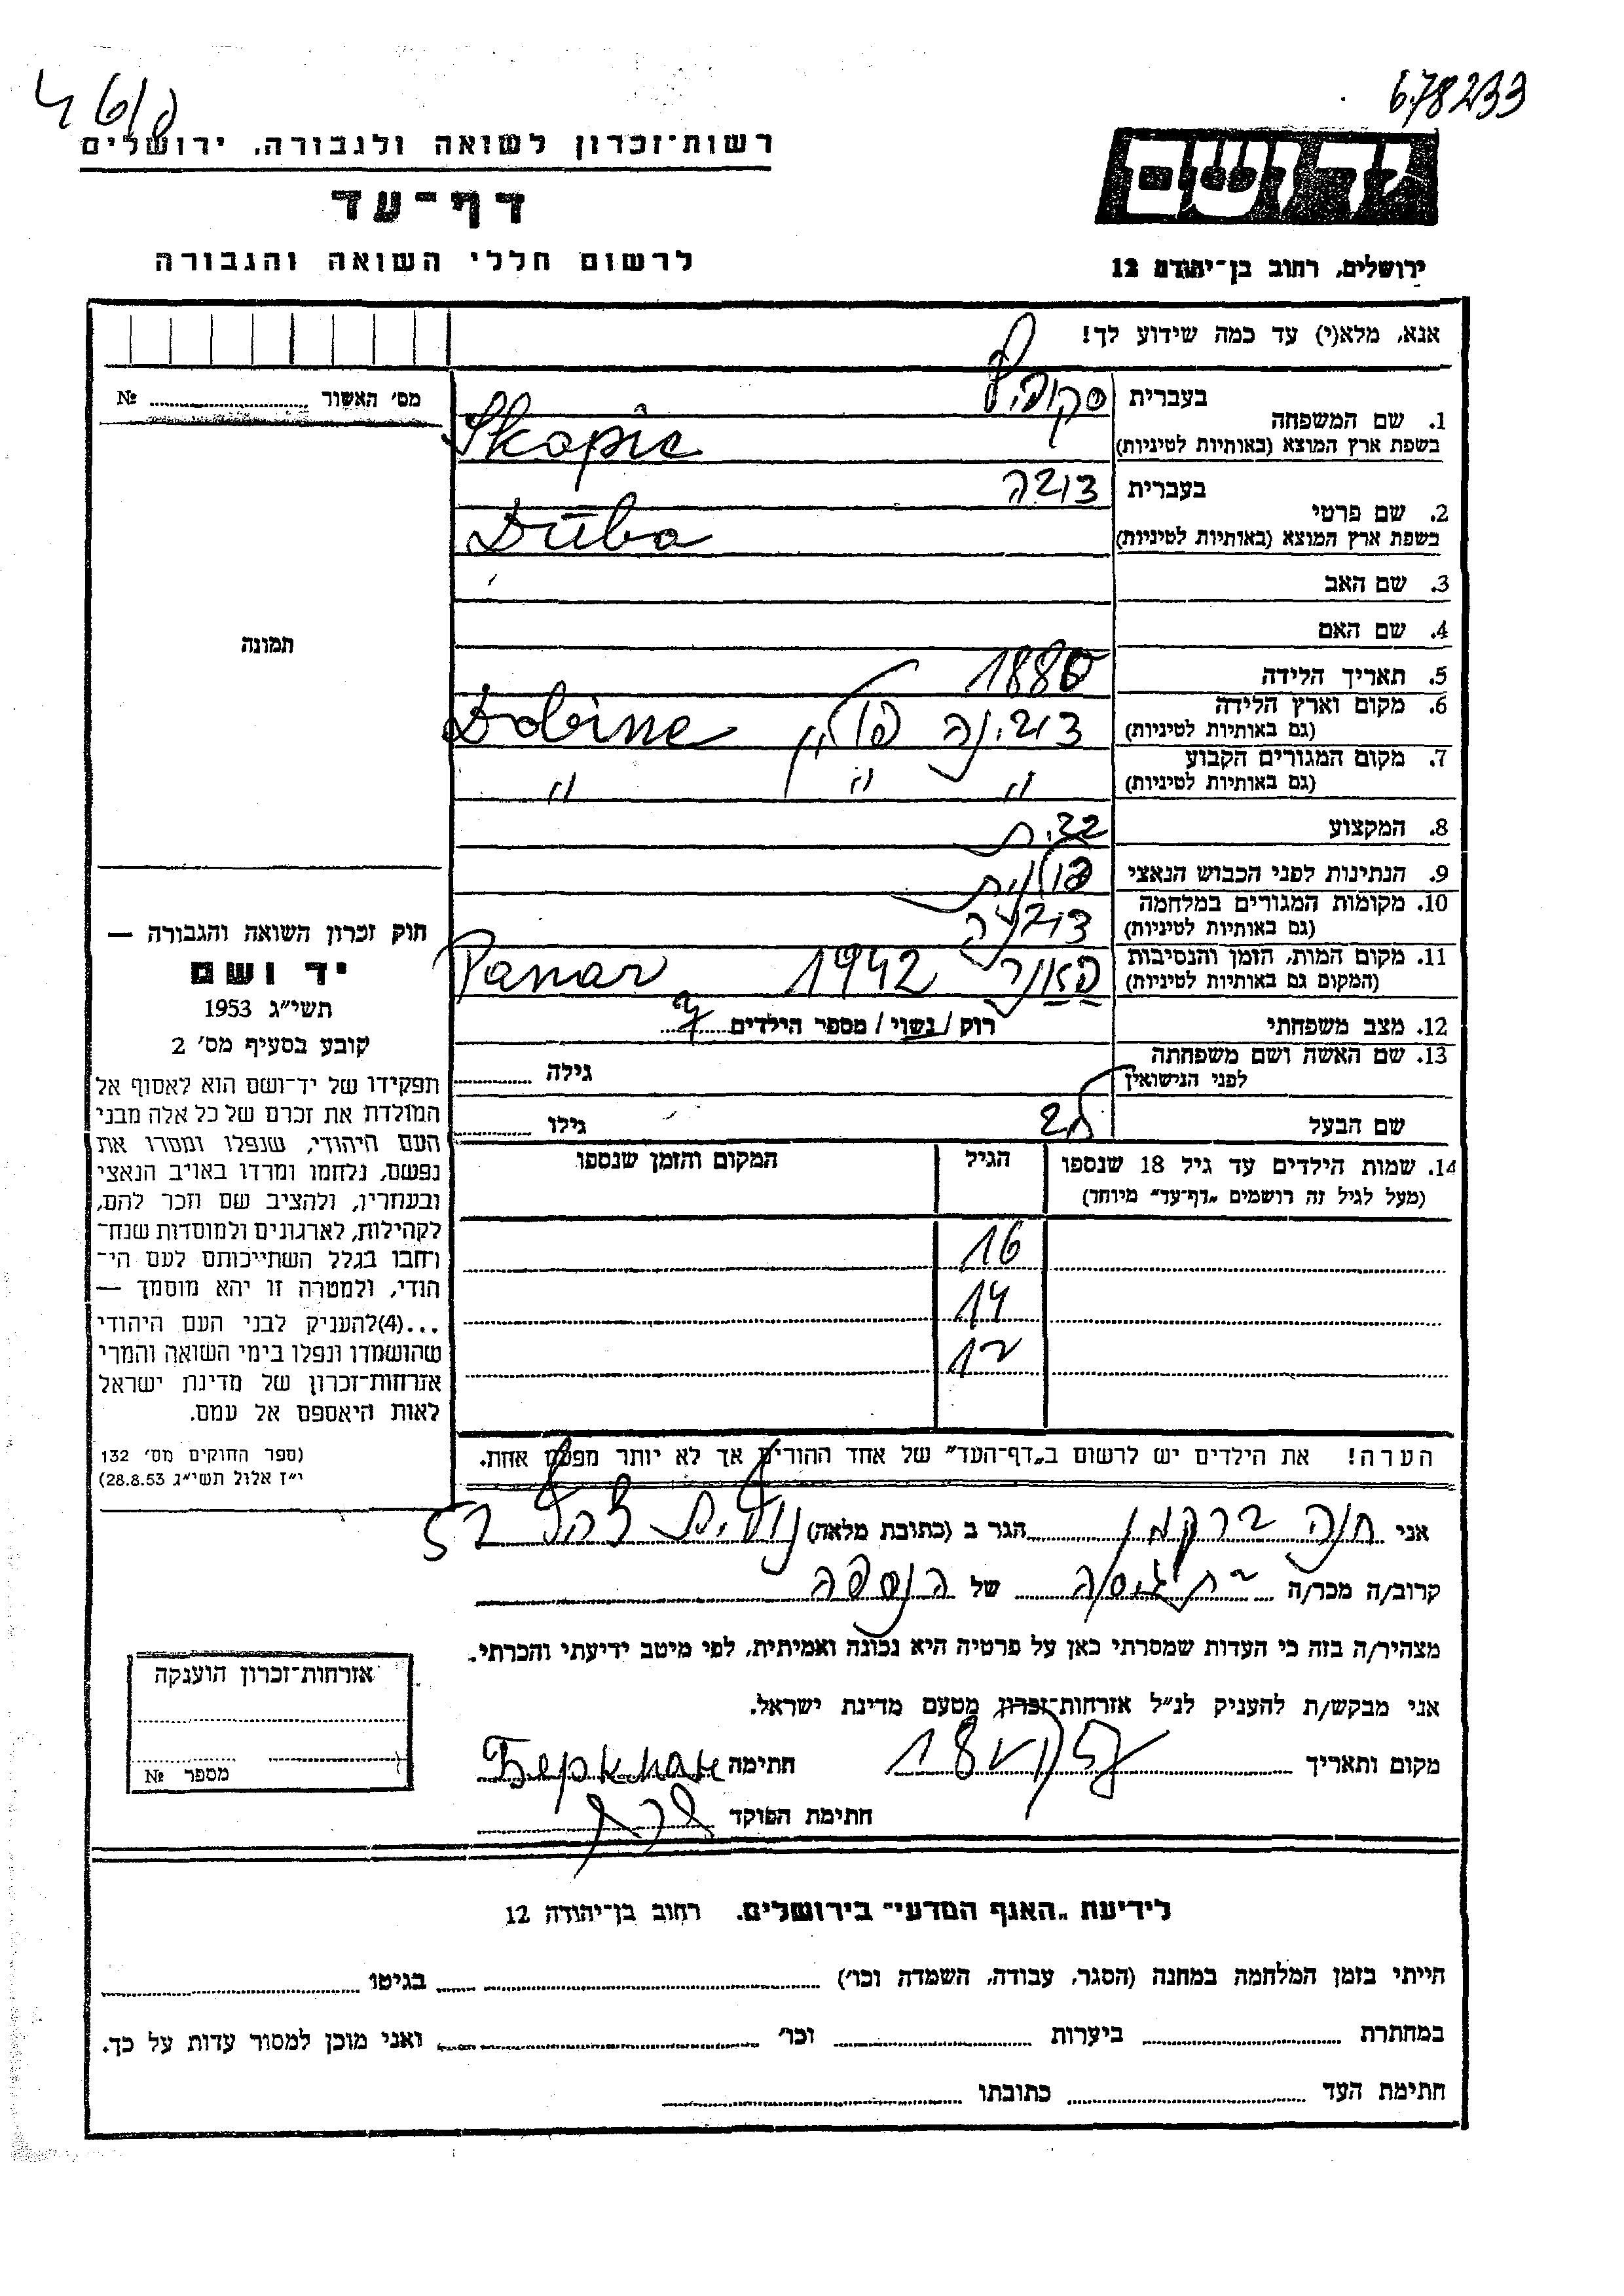 678233
רשות־זכרון לשואה ולגבורה, ירושלים
דף־עד
לרשום חללי השואה והגבורה
ידושם
ירושלים, רחוב בן־יהודה 12
אנא, מלא(י) עד כמה שידוע לך!
מס׳ האשור ........ №
1. שם המשפחה
בעברית
בשפת ארץ המוצא (באותיות לטיניות)
Skopic
2. שם פרטי
בעברית דובה
בשפת ארץ המוצא (באותיות לטיניות)
Duba
3. שם האב
4. שם האם
5. תאריך הלידה 1880
6. מקום וארץ הלידה
(גם באותיות לטיניות) דובינה פולין Dobine
7. מקום המגורים הקבוע
(גם באותיות לטיניות) " " "
8. המקצוע
9. הנתינות לפני הכבוש הנאצי פולנית
10. מקומות המגורים במלחמה
(גם באותיות לטיניות) דובינה
11. מקום המות, הזמן והנסיבות
(המקום גם באותיות לטיניות) פאנר 1942 Panar
12. מצב משפחתי רוק / נשוי / מספר הילדים
13. שם האשה ושם משפחתה
לפני הנישואין
גילה
שם הבעל
גילו
14. שמות הילדים עד גיל 18 שנספו
(מעל לגיל זה רושמים „דף־עד״ מיוחד)
הגיל
המקום והזמן שנספו
16
14
12
הערה! את הילדים יש לרשום ב„דף־העד״ של אחד ההורים אך לא יותר מפעם אחת.
תמונה
חוק זכרון השואה והגבורה —
יד ושם
תשי״ג 1953
קובע בסעיף מס׳ 2
תפקידו של יד־ושם הוא לאסוף אל
המולדת את זכרם של כל אלה מבני
העם היהודי, שנפלו ומסרו את
נפשם, נלחמו ומרדו באויב הנאצי
ובעוזריו, ולהציב שם וזכר להם,
לקהילות, לארגונים ולמוסדות שנח־
רחבו בגלל השתייכותם לעם הי־
הודי, ולמטרה זו יהא מוסמך —
...(4)להעניק לבני העם היהודי
שהושמדו ונפלו בימי השואה והמרי
אזרחות־זכרון של מדינת ישראל
לאות היאספם אל עמם.
(ספר החוקים מס׳ 132
י״ז אלול תשי״ג 28.8.53)
אני חנה ברקמן הגר ב (כתובת מלאה)
קרוב/ה מכר/ה של הנספה
מצהיר/ה בזה כי העדות שמסרתי כאן על פרטיה היא נכונה ואמיתית, לפי מיטב ידיעתי והכרתי.
אני מבקש/ת להעניק לנ״ל אזרחות־זכרון מטעם מדינת ישראל.
מקום ותאריך
חתימה Беркман
חתימת הפוקד
אזרחות־זכרון הוענקה
מספר №
לידיעת „האגף המדעי״ בירושלים. רחוב בן־יהודה 12
הייתי בזמן המלחמה במחנה (הסגר, עבודה, השמדה וכו׳) ........ בגיטו ........
במחתרת ........ ביערות ........ וכו׳ ........ ואני מוכן למסור עדות על כך.
חתימת העד ........ כתובתו ........